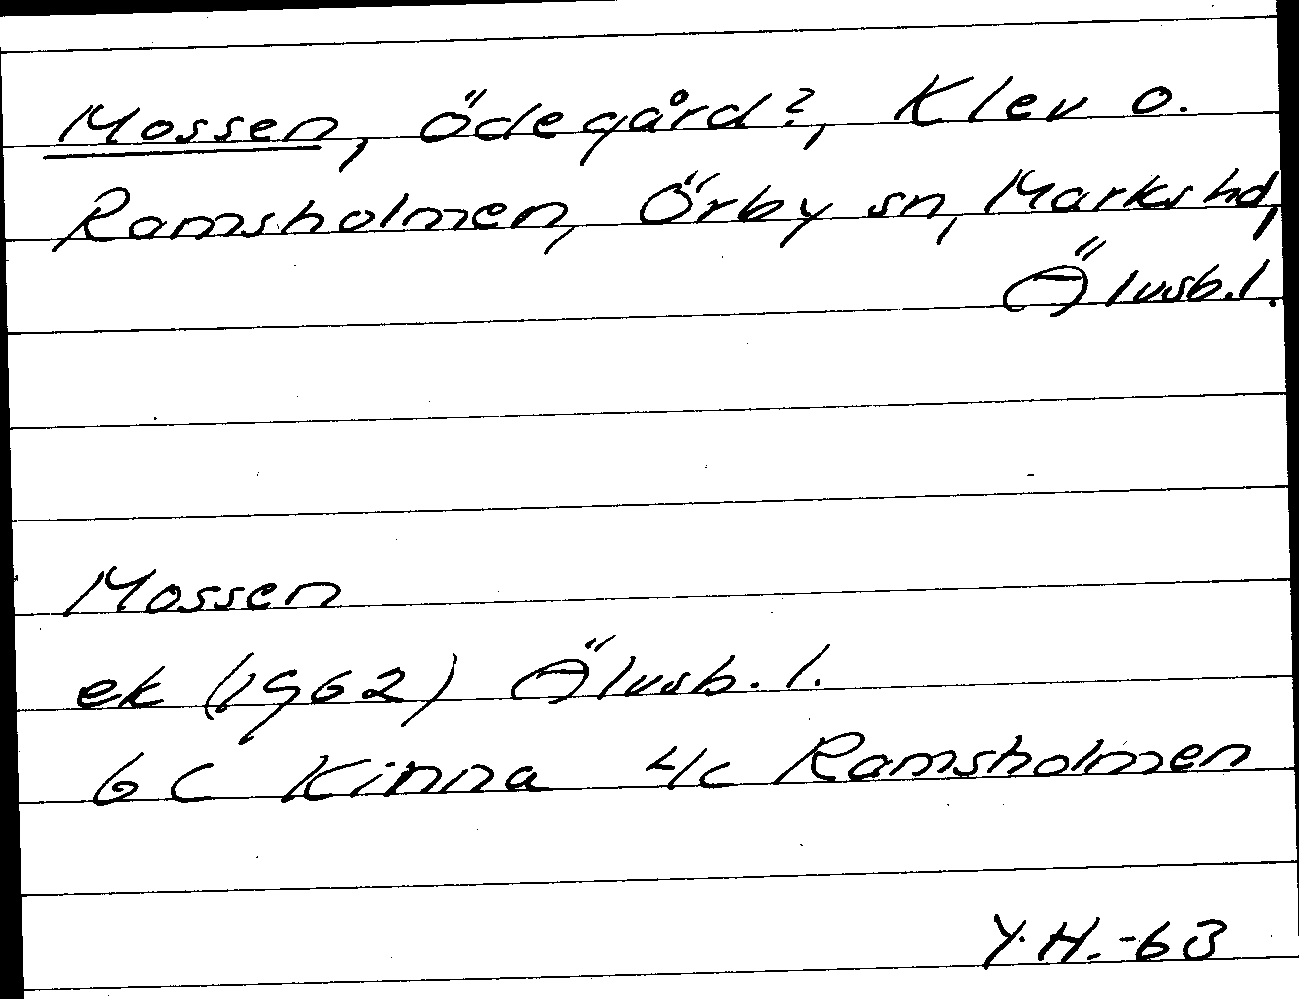 Mossen, ödegård?, Klev o.
Ramsholmen, Örby sn, Marks hd,
Älvsb. l.
Mossen
ek (1962) Älvsb. l.
6C Kinna 4c Ramsholmen
Y.H. -63